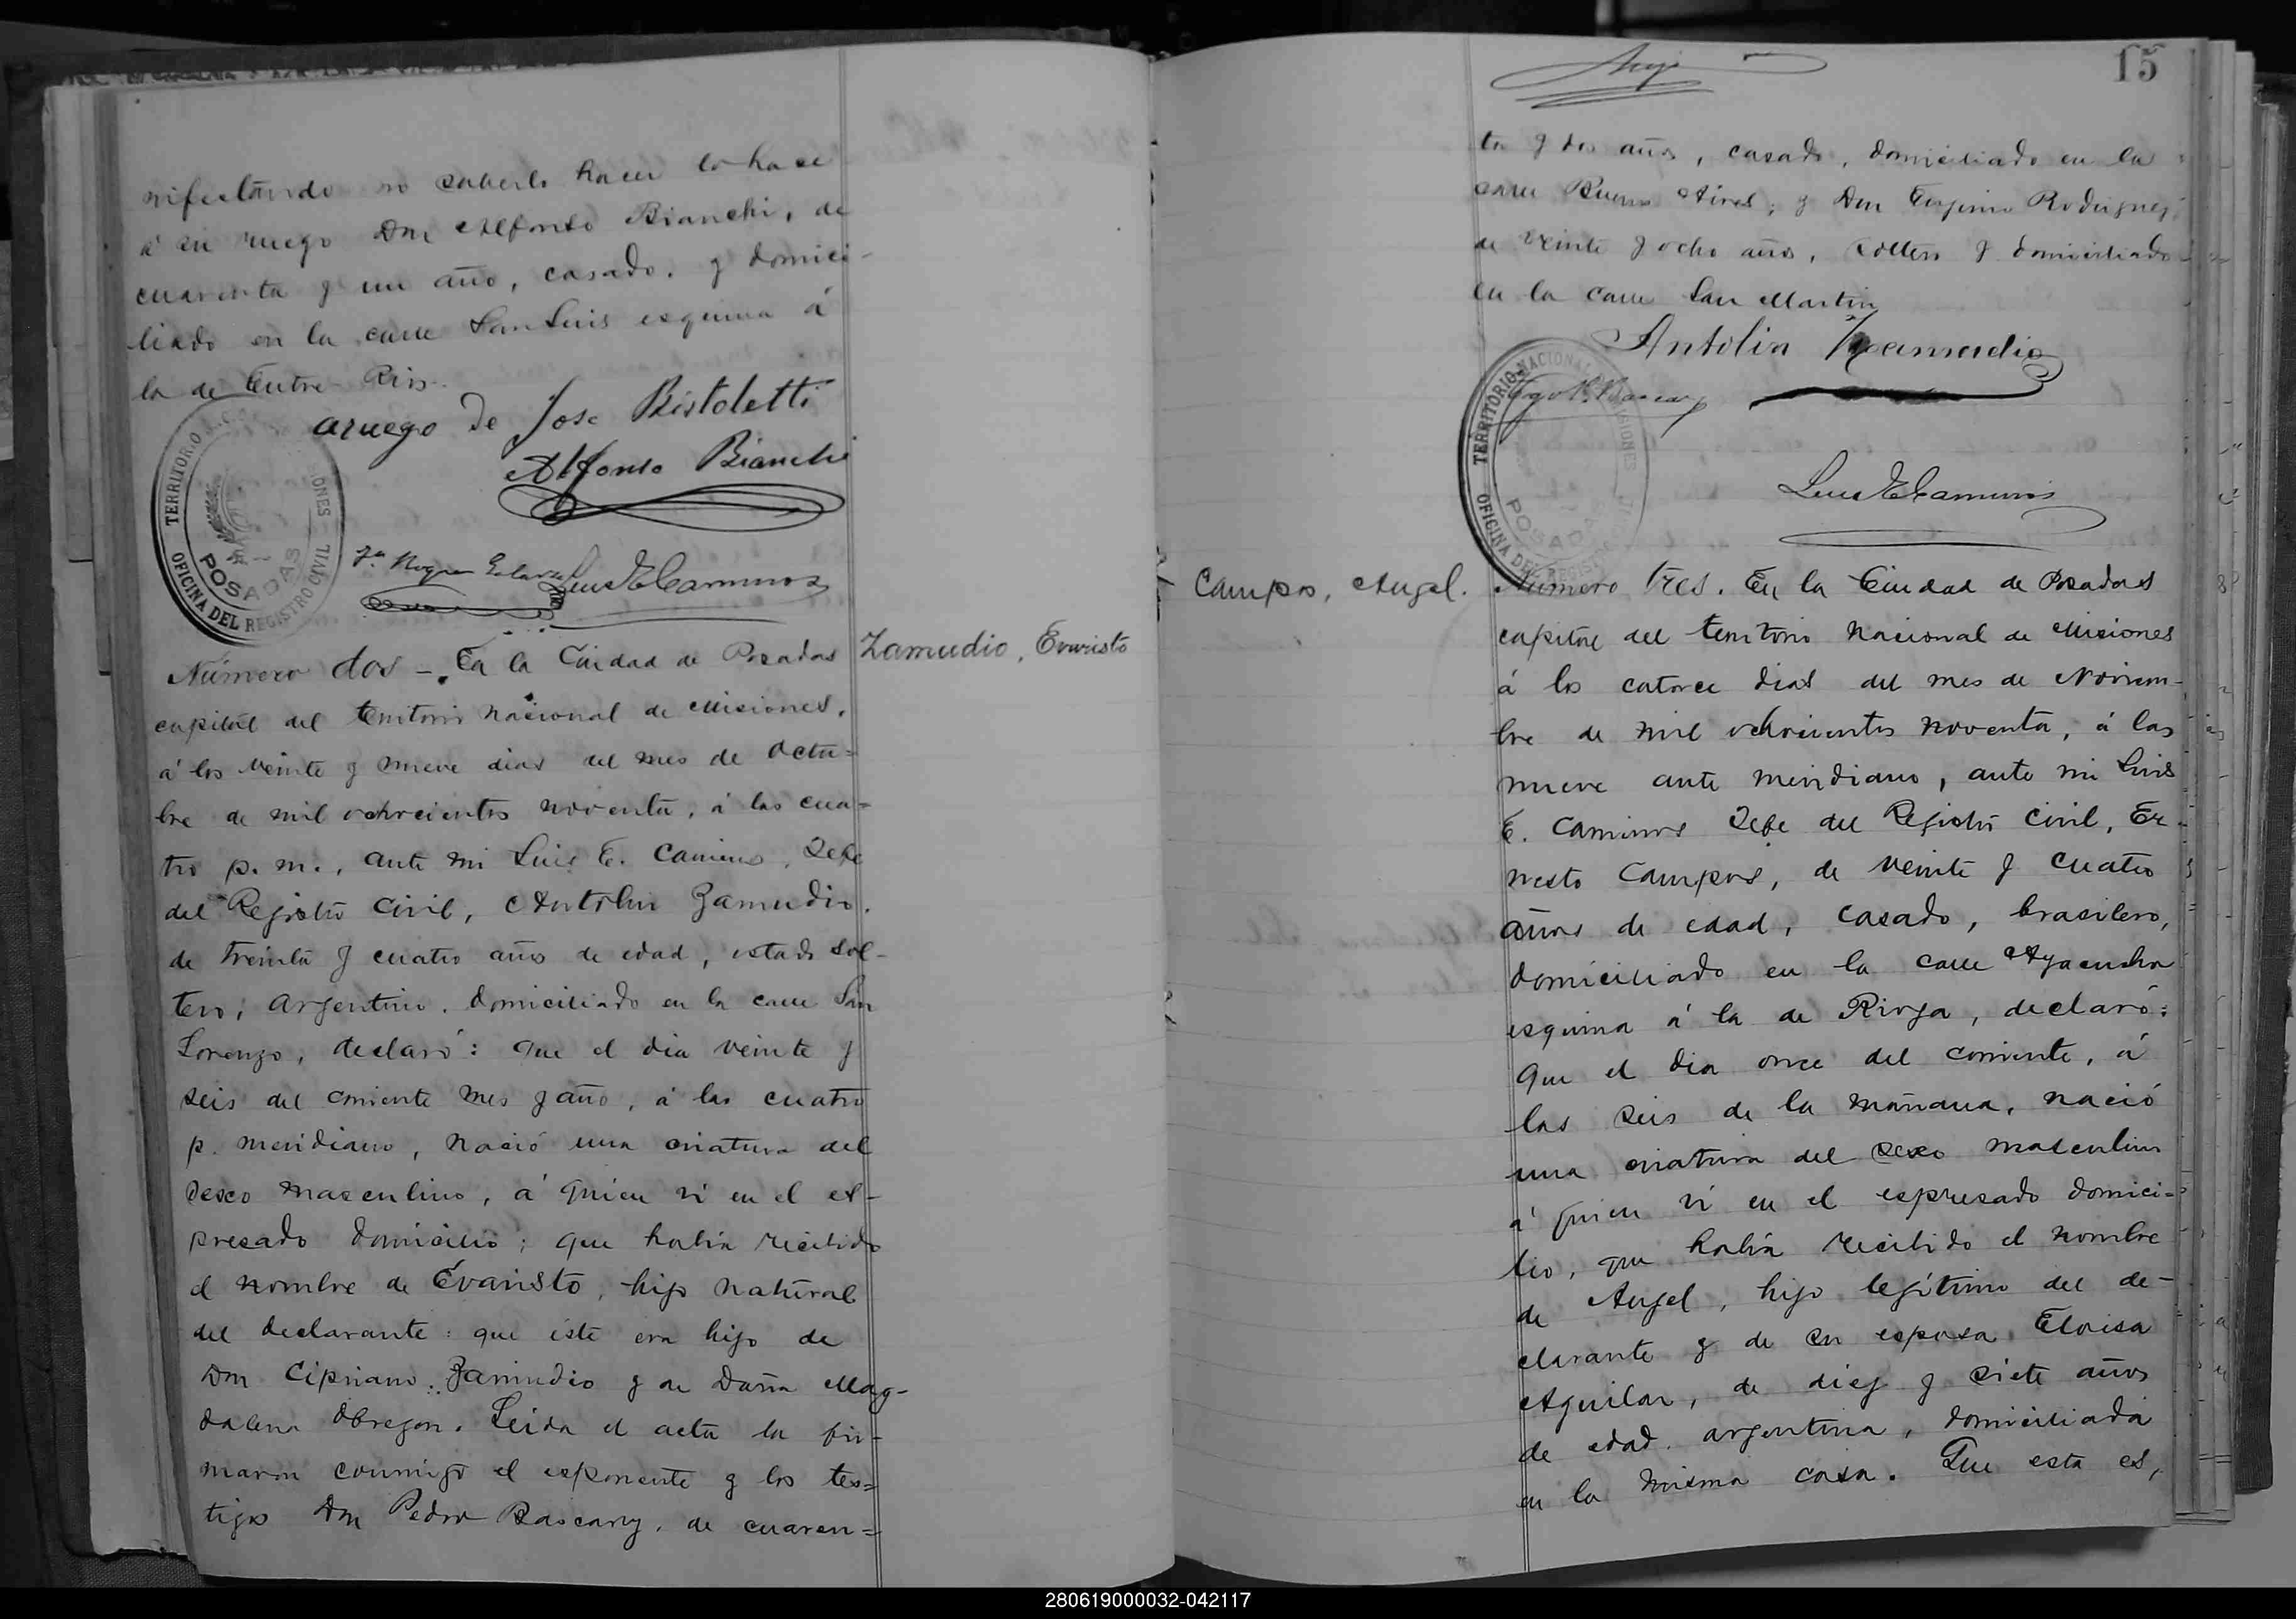 nifestando no saberlo hacer lo hace
á su ruego Don Alfonso Bianchi, de
cuarenta y un año, casado, y domici-
liado en la calle San Luis esquina á
la de Entre Rios.
aruego de Jose Bistoletti
Alfonso Bianchi
TERRITORIO
OFICINA DEL REGISTRO CIVIL
POSADAS
Luis E Caminos
Número dos - En la Ciudad de Posadas
Zamudio, Evaristo
capital del territorio nacional de Misiones,
á los veinte y nueve dias del mes de Octu=
bre de mil ochocientos noventa, á las cua=
tro p. m., ante mi Luis E. Caminos, Jefe
del Registro Civil, Antolin Zamudio,
de treinta y cuatro años de edad, estado sol-
tero, argentino, domiciliado en la calle San
Lorenzo, declaró: que el dia veinte y
seis del corriente mes y año, á las cuatro
p. meridiano, nació una criatura del
sexo masculino, á quien vi en el es-
presado domicilio; que habia recibido
el nombre de Evaristo, hijo natural
del declarante: que éste era hijo de
Don Cipriano Zamudio y de Doña Mag-
dalena Obregon. Leida el acta la fir-
maron conmigo el esponente y los tes=
tigos Don Pedro Bascary, de cuaren=
15
ta y dos años, casado, domiciliado en la
calle Buenos Aires; y Don Eugenio Rodriguez,
de veinte y ocho años, soltero y domiciliado
en la calle San Martin
Antolin Zamudio
TERRITORIO NACIONAL DE MISIONES
OFICINA DEL REGISTRO CIVIL
POSADAS
Luis E Caminos
Campos, Angel.
Número tres. En la Ciudad de Posadas
capital del territorio nacional de Misiones
á los catorce dias del mes de Noviem-
bre de mil ochocientos noventa, á las
nueve ante meridiano, ante mi Luis
E. Caminos Jefe del Registro Civil, Er-
nesto Campos, de veinte y cuatro
años de edad, casado, brasilero,
domiciliado en la calle Ayacucho
esquina á la de Rioja, declaró:
Que el dia once del corriente, á
las seis de la mañana, nació
una criatura del sexo masculino
á quien vi en el espresado domici-
lio, que habia recibido el nombre
de Angel, hijo legítimo del de-
clarante y de su esposa Eloisa
Aguilar, de diez y siete años
de edad, argentina, domiciliada
en la misma casa. Que esta es,
280619000032-042117